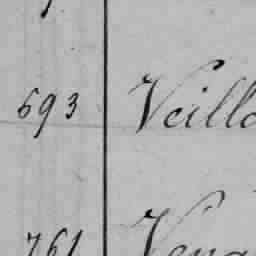 693 Veillo
761 Vena